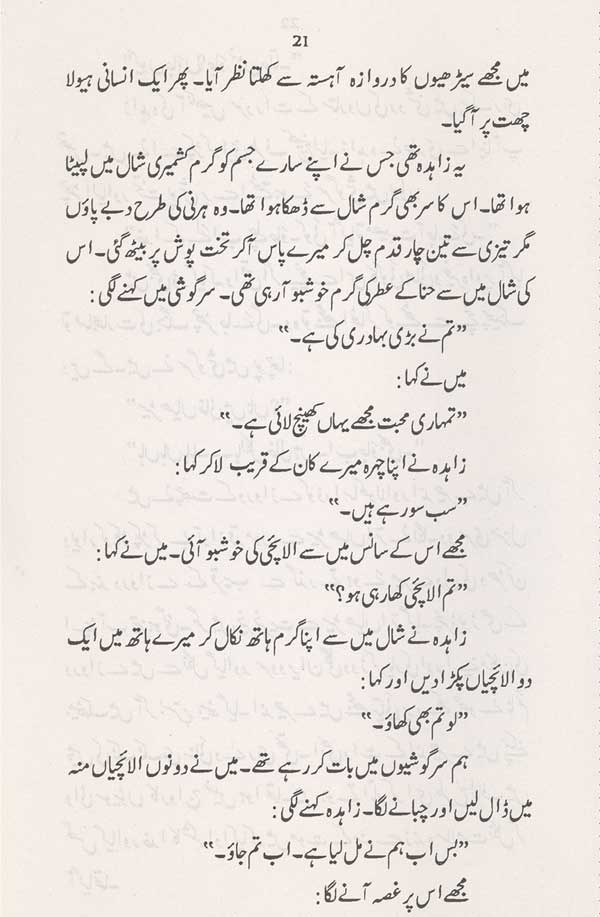 21
میں مجھے سیڑھیوں کا دروازہ آہستہ سے کھلتا نظر آیا۔ پھر ایک انسانی ہیولا
چھت پر آگیا۔
یہ زاہدہ تھی جس نے اپنے سارے جسم کو گرم کشمیری شال میں لپیٹا
ہوا تھا۔ اس کا سر بھی گرم شال سے ڈھکا ہوا تھا۔ وہ ہرنی کی طرح دبے پاؤں
مگر تیزی سے تین چار قدم چل کر میرے پاس آکر تخت پوش پر بیٹھ گئی۔ اس
کی شال میں سے حنا کے عطر کی گرم خوشبو آرہی تھی۔ سرگوشی میں کہنے لگی:
”تم نے بڑی بہادری کی ہے۔“
میں نے کہا:
”تمہاری محبت مجھے یہاں کھینچ لائی ہے۔“
زاہدہ نے اپنا چہرہ میرے کان کے قریب لاکر کہا:
”سب سو رہے ہیں۔“
مجھے اس کے سانس میں سے الائچی کی خوشبو آئی۔ میں نے کہا:
”تم الائچی کھا رہی ہو؟“
زاہدہ نے شال میں سے اپنا گرم ہاتھ نکال کر میرے ہاتھ میں ایک
دو الائچیاں پکڑا دیں اور کہا:
”لو تم بھی کھاؤ۔“
ہم سرگوشیوں میں بات کر رہے تھے۔ میں نے دونوں الائچیاں منہ
میں ڈال لیں اور چبانے لگا۔ زاہدہ کہنے لگی:
”بس اب ہم نے مل لیا ہے۔ اب تم جاؤ۔“
مجھے اس پر غصہ آنے لگا: